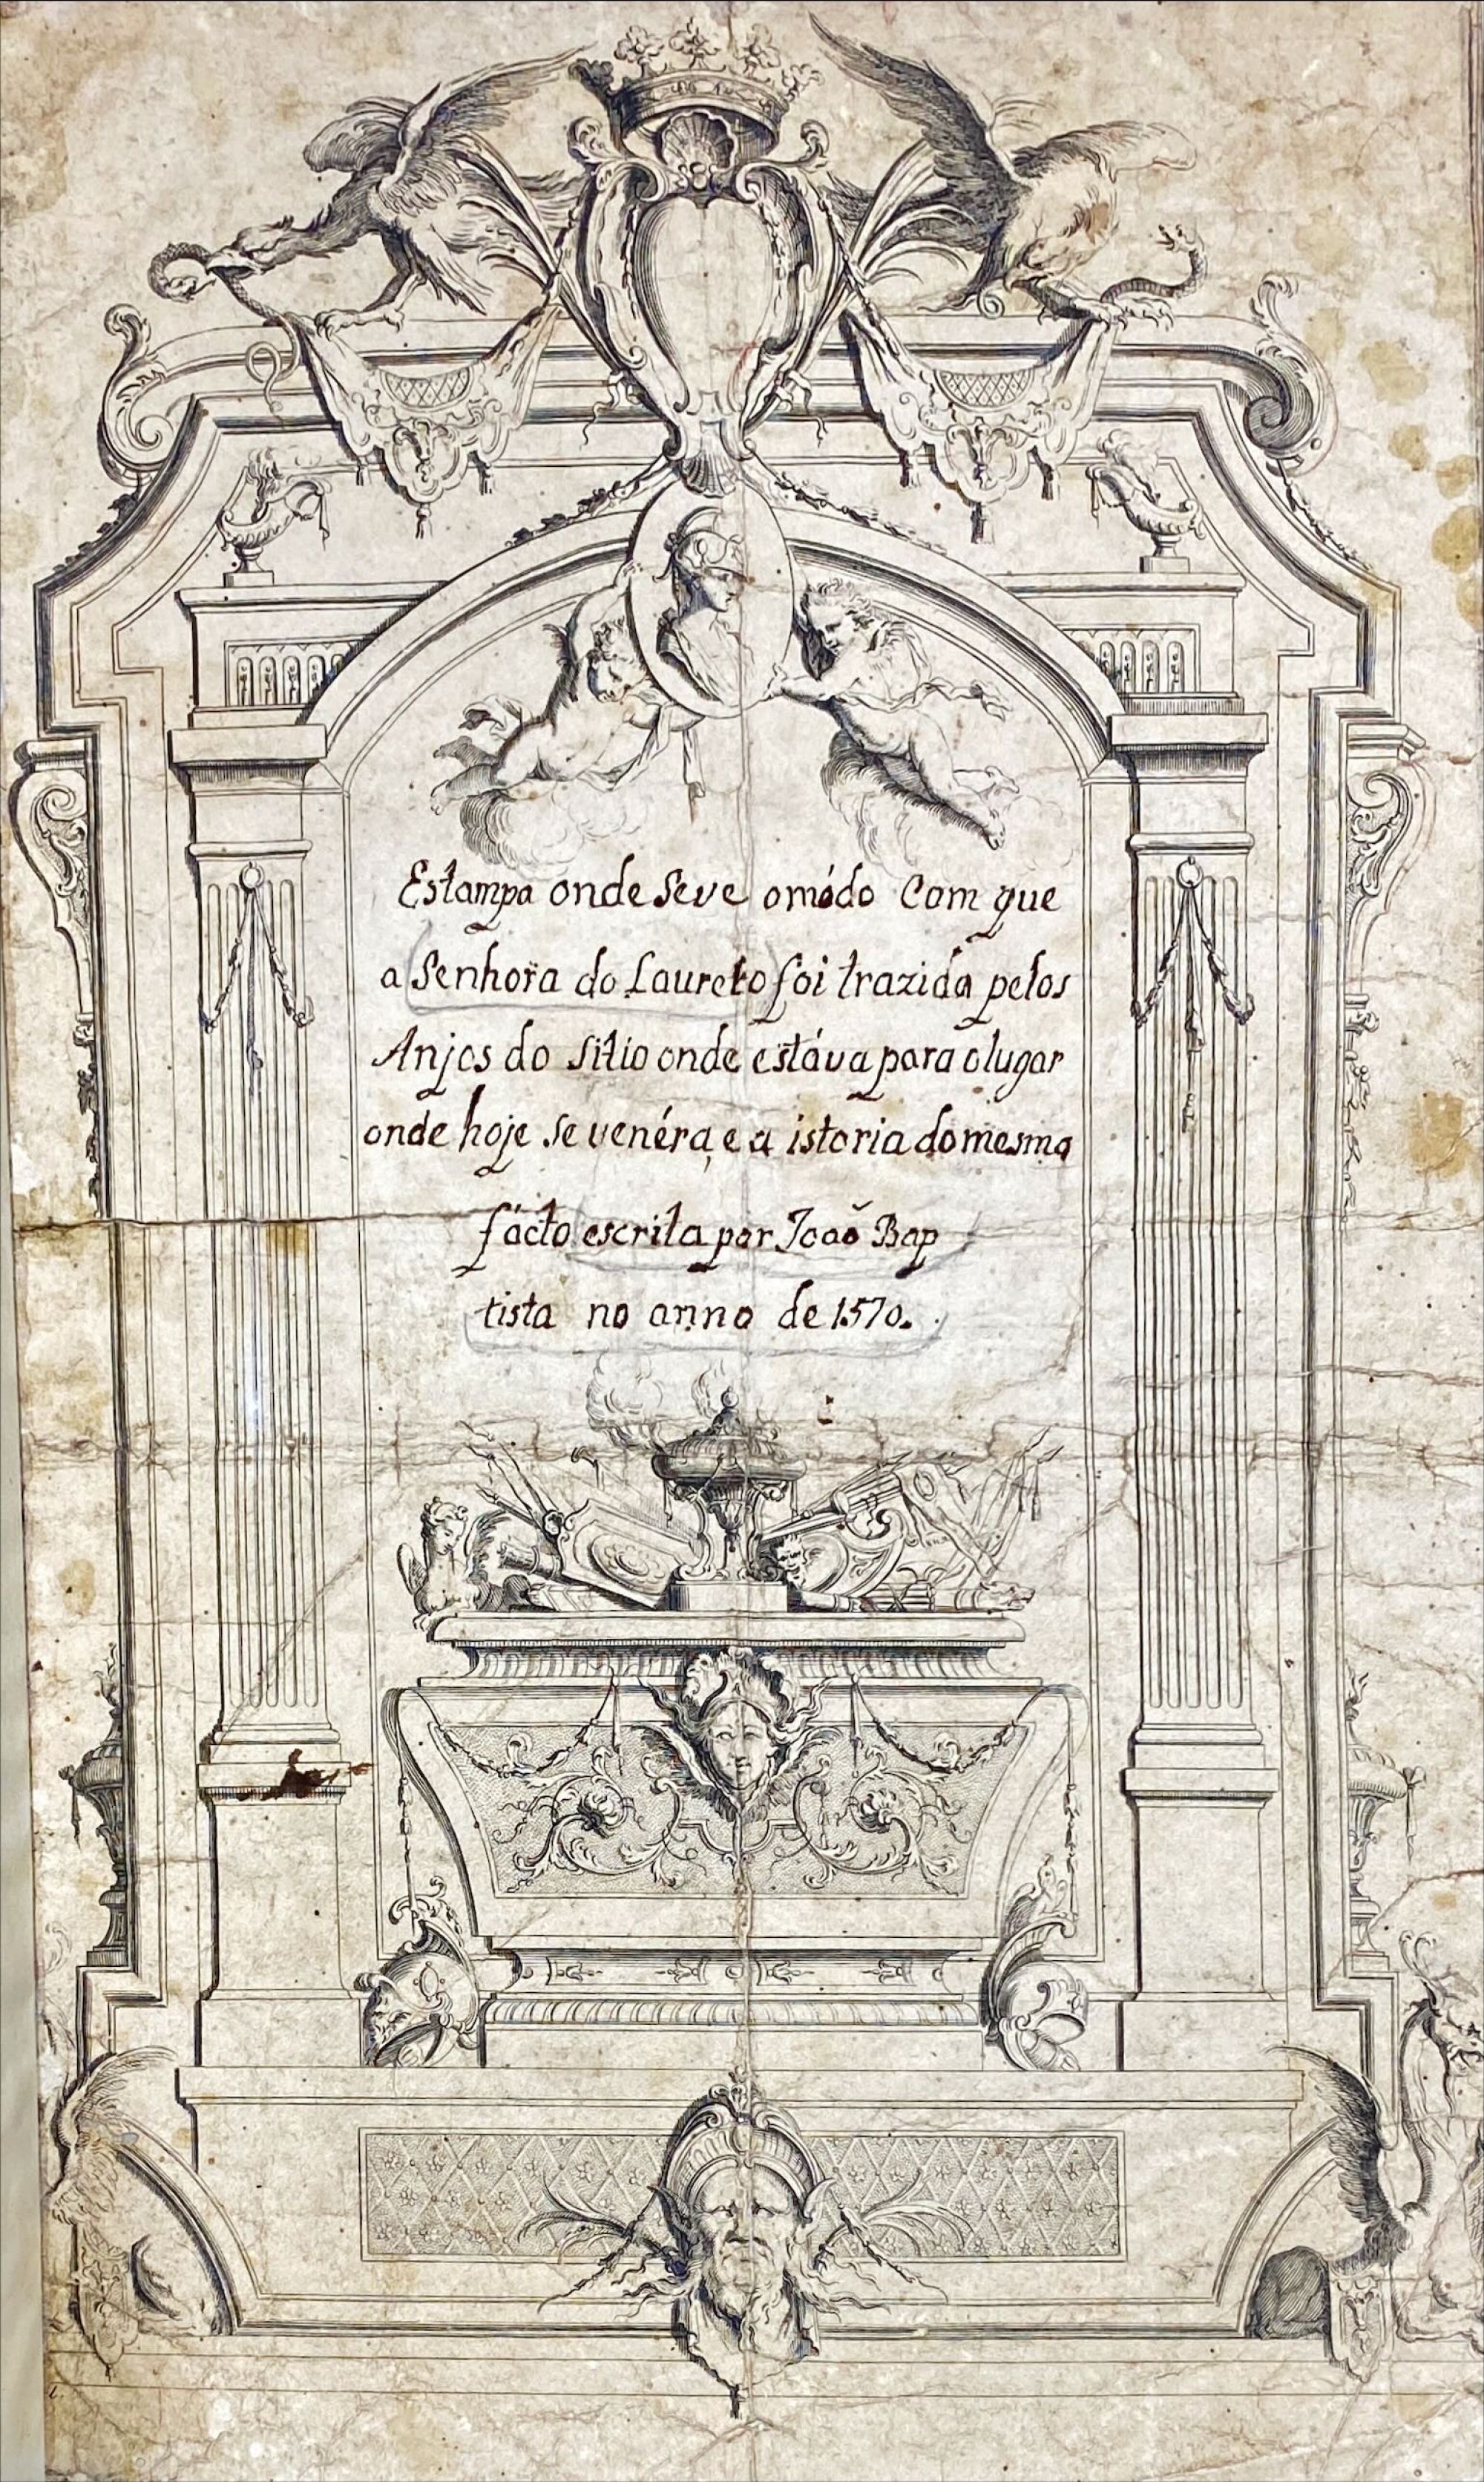 Estampa onde Seve omódo Com que
a Senhora do Laureto foi trazida pelos
Anjos do sitio onde estáva para olugar
onde hoje se venéra, e a istoria domesmo
fácto escrita por Joaõ Bap
tista no anno de 1570.